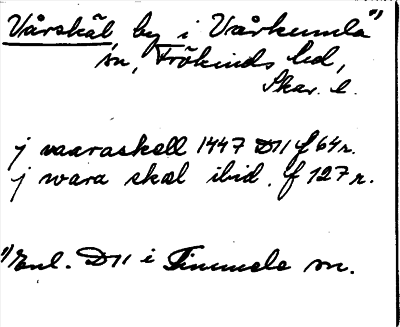 Vårskäl by i Vårkumla 1)
sn, Frökinds hd,
Skar. l.
j vaaraskell 1447 D11 f 64r.
j wara skal ibid. f 127r.
1) Enl. D11 i Timmele sn.